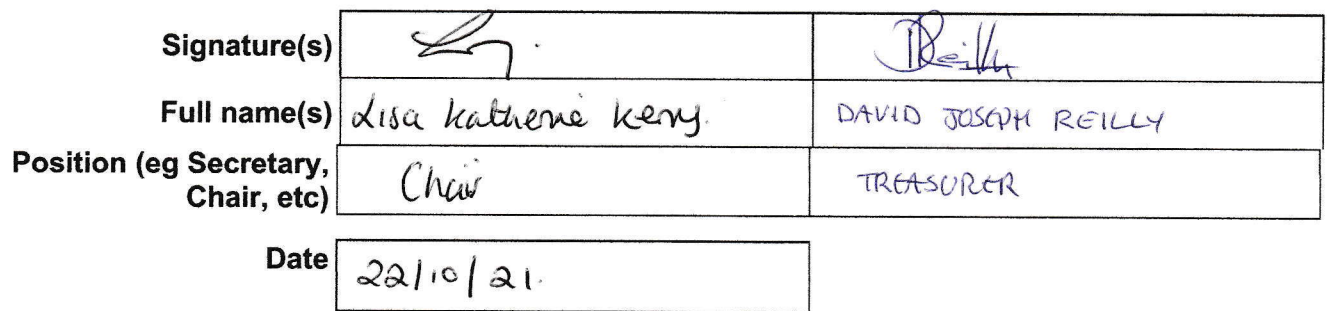 Signature(s) DReilly
Full name(s) Lisa Katherine Kerry. DAVID JOSEPH REILLY
Position (eg Secretary, Chair TREASURER
Chair, etc)
Date 22/10/21.